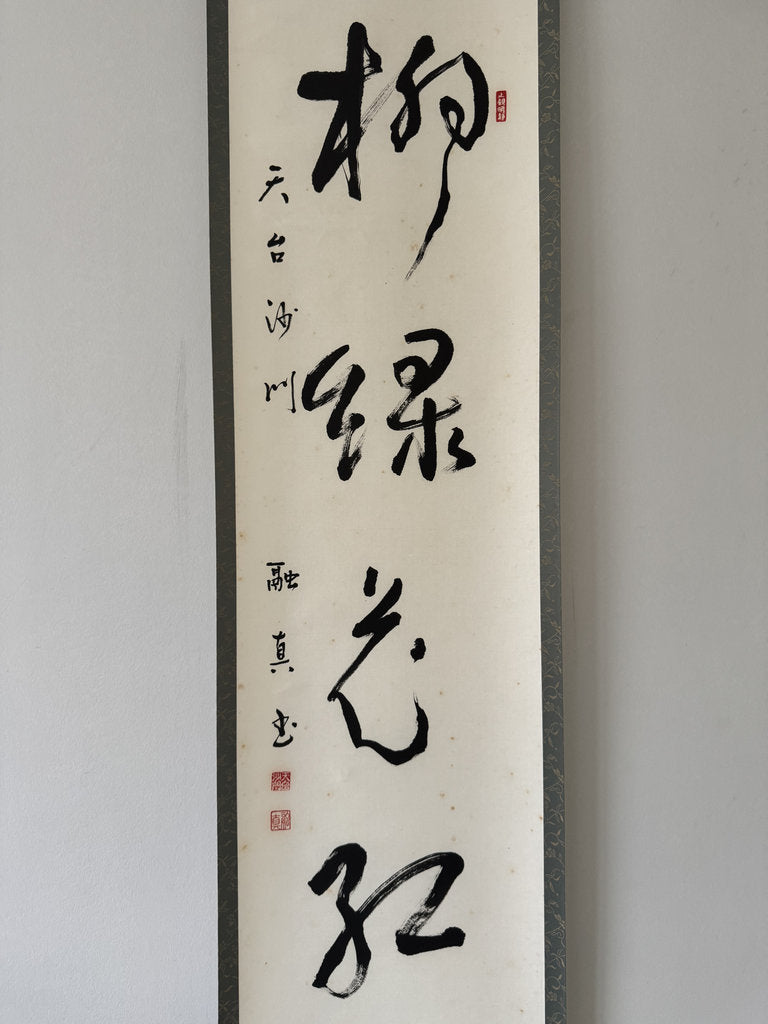 柳緑花紅
天台沙門 融真书